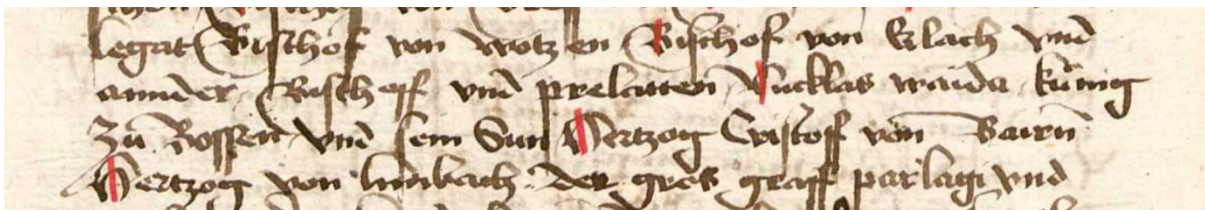 legat Bischof von wotzen Bischof von Erlach vnd
annder Bischoff vnd prelatten Nicklas waida kunig
zu Bossen vnd sein Sun Hertzog Cristoff von Bairn
Hertzog von limbach der gros graff parlagi vnd